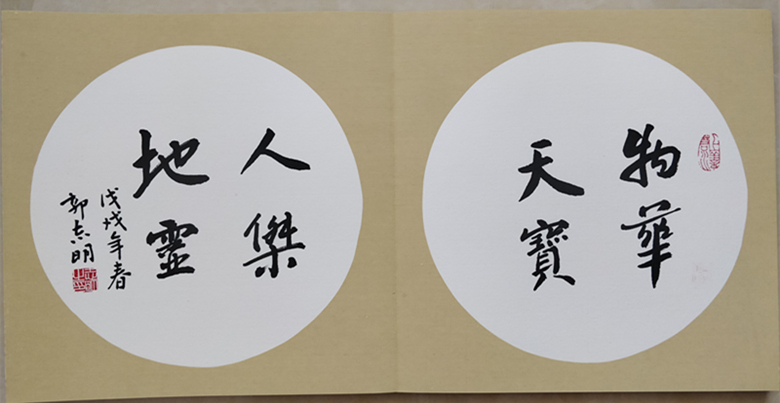 物華
天寶
人傑
地靈
戊戌年春
郭志明